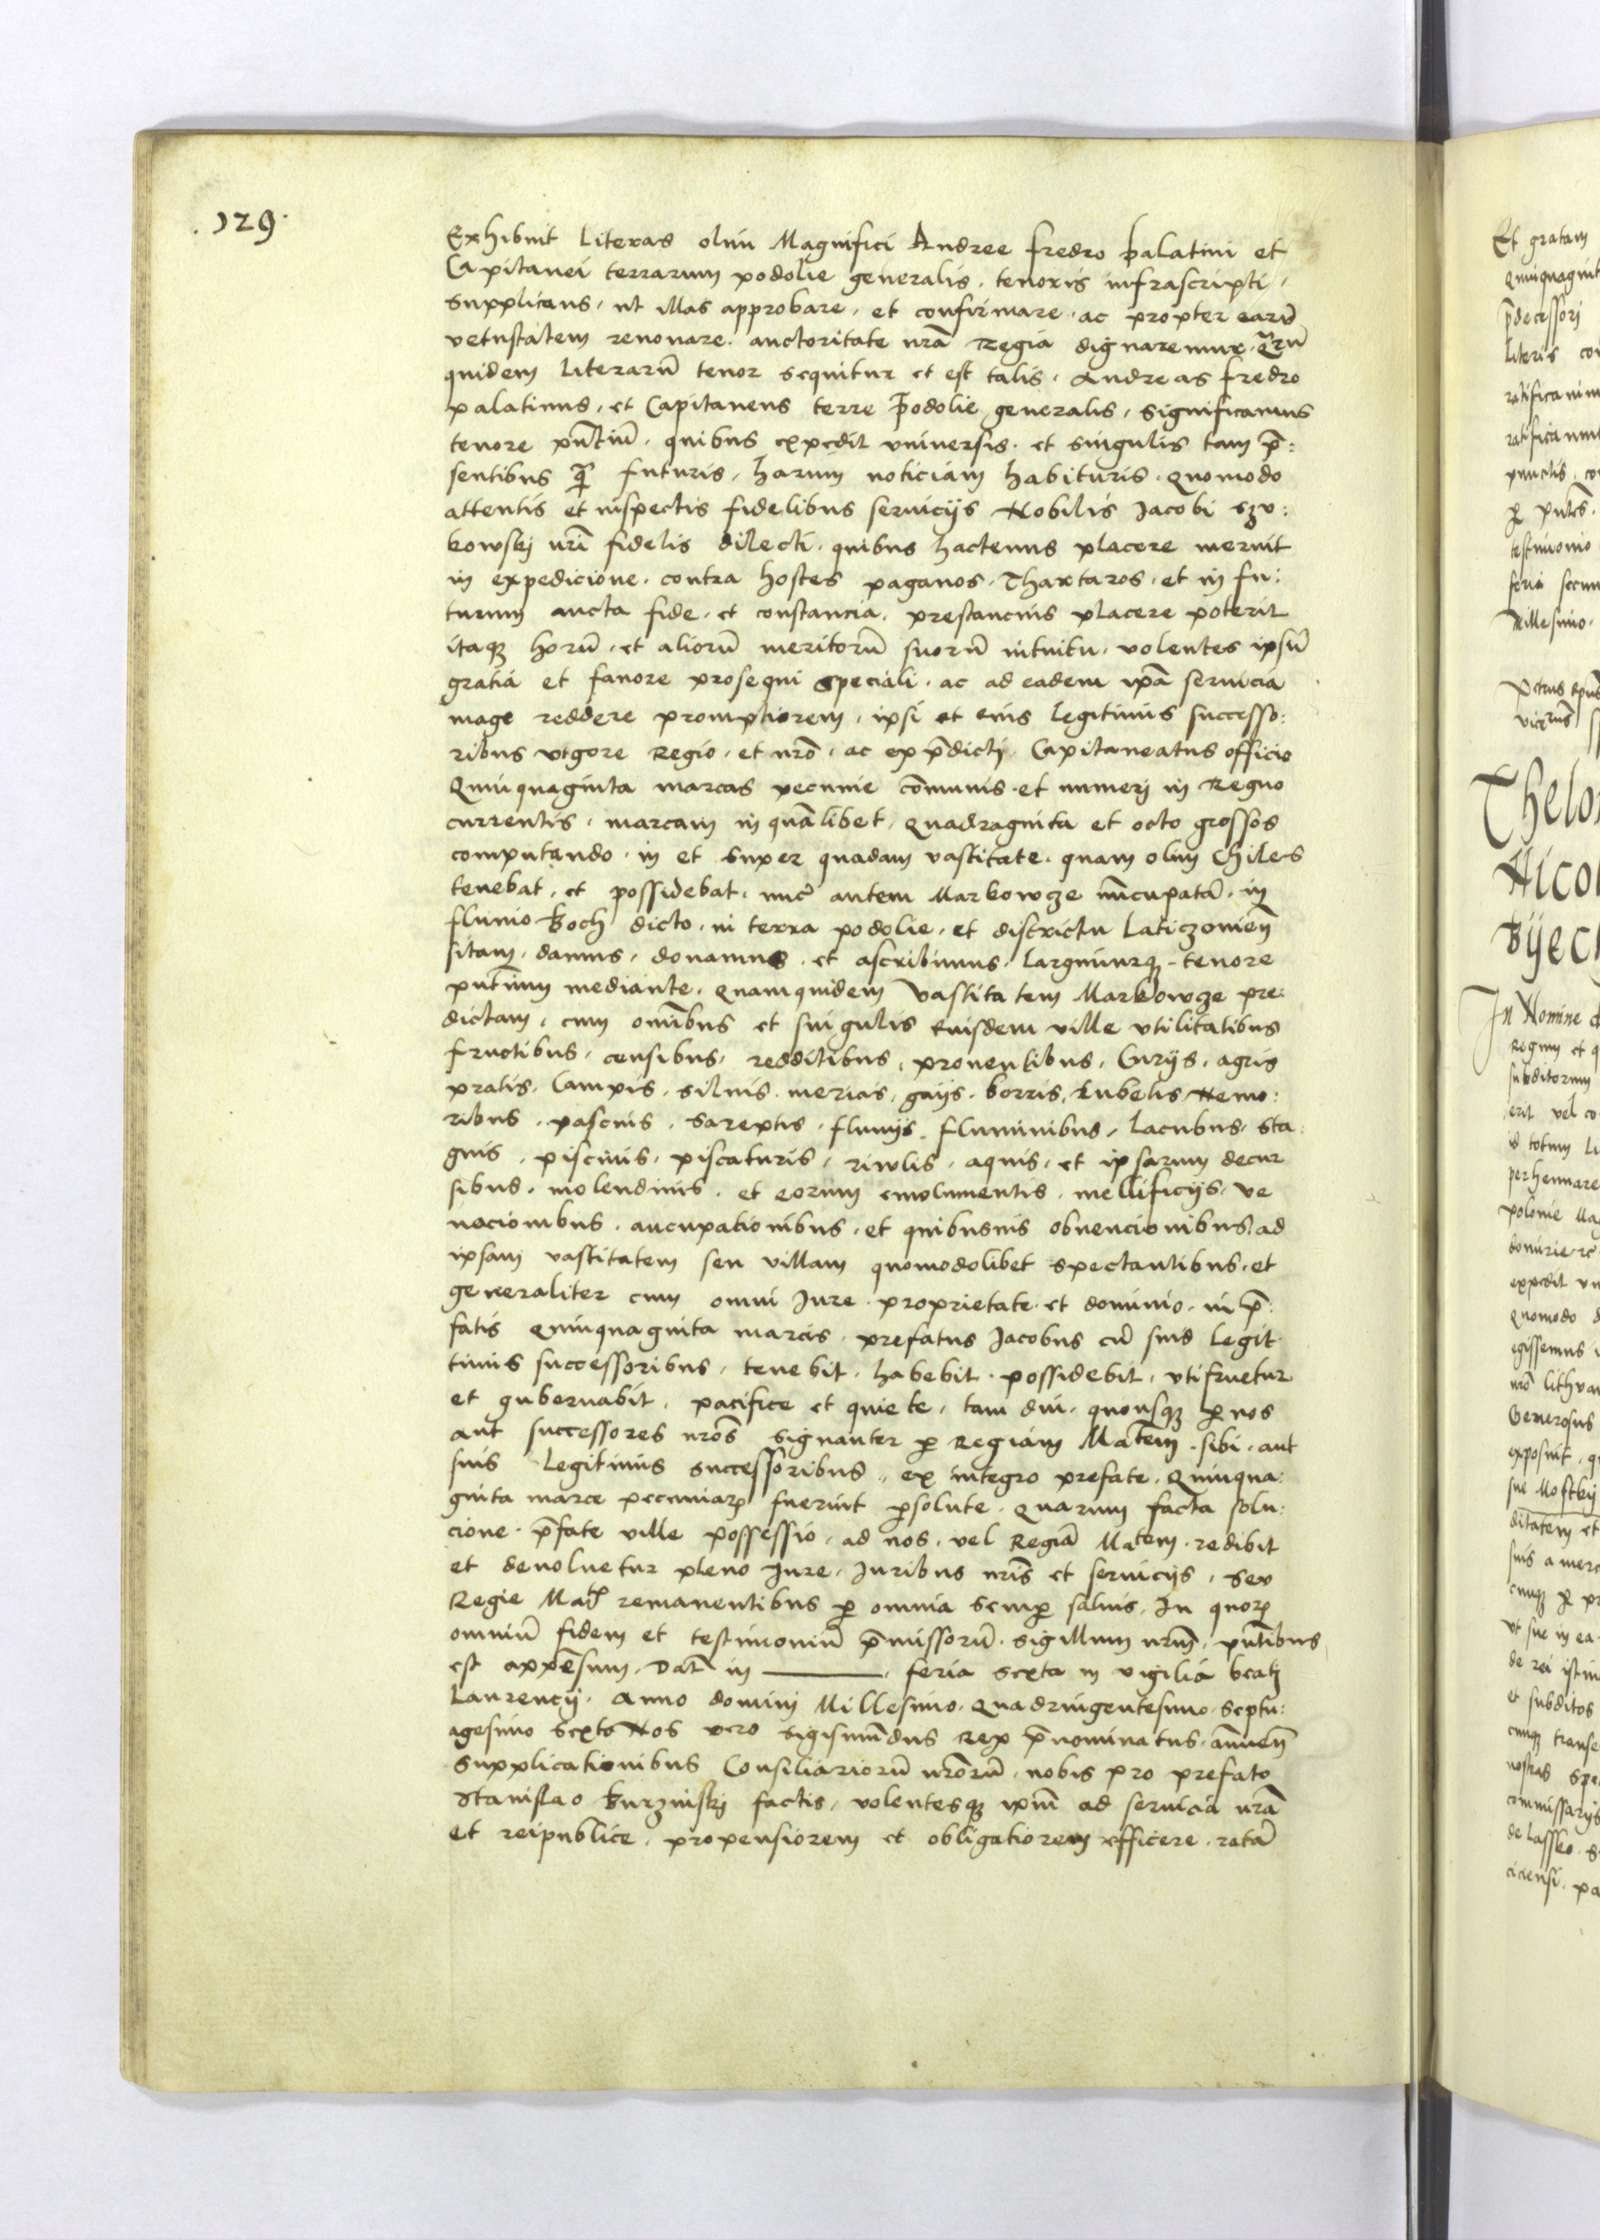 .129.
Exhibuit literas olim Magnifici Andree fredro palatini et
Capitanei terrarum podolie generalis. tenoris infrascripti.
supplicans. ut illas approbare. et confirmare. ac propter earū
vetustatem renouare. auctoritate nrā Regia dignaremur. q̄rū
quidem literarū tenor sequitur et est talis. Andreas fredro
palatinus. et Capitaneus terre podolie generalis. significamus
tenore pn̄tiū. quibus expedit vniuersis. et singulis tam p̄:
sentibus q̄ futuris. harum noticiam habituris. quomodo
attentis et inspectis fidelibus seruicijs Nobilis Jacobi czu:
kowskj nrī fidelis dilecti. quibus hactenus placere meruit
in expedicione. contra hostes paganos. Thartaros. et in fu:
turum aucta fide. et constancia. prestancius placere poterit
itaqȝ horū. et aliorū meritorū suorū intuitu. volentes ipsū
gratia et fauore prosequi speciali. ac ad eadem ip̄a seruicia
mage reddere prompliorem. ipsi et eius legitimis successo:
ribus vigore Regio. et nrō. ac ex p̄dicti Capitaneatus officio
Quinquaginta marcas pecunie cōmunis. et numerj in Regno
currentis. marcam in quālibet. quadraginta et octo grossos
computando. in et super quadam vastitate. quam olim Chilers
tenebat. et possidebat. nūc autem Markowcze nūcupatā. in
fluuio koch dicto. in terra podolie. et districtu laticzouien̄
sitam. damus. donamus. et ascribimus. largimurqȝ. tenore
pn̄tium mediante. quamquidem vastitatem Markowcze pre:
dictam. cum omībus et singulis eiusdem ville vtilitatibus
fructibus. censibus. redditibus. prouentibus. Curijs. agris
pratis. Campis. siluis. mericis. gaijs. borris. Rubetis Nemo:
ribus. pascuis. sareptis. fluuijs. fluminibus. lacubus. sta:
gnis. piscinis. piscaturis. riuulis. aquis. et ipsarum decur
sibus. molendinis. et eorum emolumentis. mellificijs. ve
nacionibus. aucupationibus. et quibusuis obuencionibus. ad
ipsam vastitatem seu villam quomodolibet spectantibus. et
generaliter cum omni Jure. proprietate et dominio. in p̄:
fatis quinquaginta marcis. prefatus Jacobus cū suis legit
timis successoribus. tenebit. habebit. possidebit. vtifruetur
et gubernabit. pacifice et quiete. tam diu. quousqȝ ꝑ nos
aut successores nrōs signanter ꝑ Regiam Matem̄. sibi. aut
suis legitimis successoribus. ex integro prefate. quinqua:
ginta marce pecuniarꝝ fuerint ꝑsolute. quarum facta solu:
cione. p̄fate ville possessio. ad nos. vel Regiā Matem. redibit
et deuoluetur pleno Jure. Juribus nrīs et seruicijs. seu
Regie Matis remanentibus ꝑ omnia semꝑ saluis. In quorꝝ
omniū fidem et testimoniū p̄missorū. sigillum nrūm. pn̄tibus
est appēsum. Datū in ———. feria sexta in vigilia beatj
laurencij. Anno domini Millesimo. quadringentesimo. septu:
agesimo sexto Nos vero sigismūdus Rex p̄nominatus. annuen̄
supplicationibus Consiliariorū nrōrū. nobis pro prefato
Stanislao kurzinskj factis. volentesqȝ ip̄m ad seruicia nrā
et reipublice. propensiorem et obligatiorem efficere. ratā
Et gratam
quinquagint
p̄decessori
literis con
ratificauim
ratificamus
punctis. co
ꝑ pn̄tes.
testimonio
feria secun
Millesimo.
Petrus epūs
Thelo
Nicol
Byech
In Nomine d
Regum et q
subditorum
erit vel co
id totum li
perhennare
polonie Ma
expedit vn
quomodo d
egissemus
Generosus
exposuit. q
ditatem et
suis a
vt sue in ea
et subditos
cumqȝ transe
nostras spe
commissarijs
de lassko. s